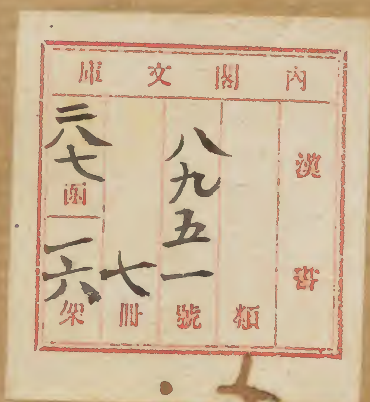 內閣文庫
漢書
類
八九五一號
七冊
二八七函
一六架